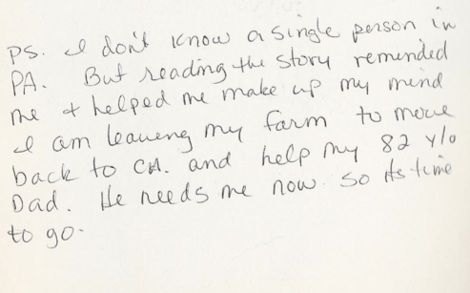 PS. I don't know a single person in
PA. But reading the story reminded
me + helped me make up my mind
I am leaving my farm to move
back to CA. and help my 82 y/o
Dad. He needs me now. So its time
to go.